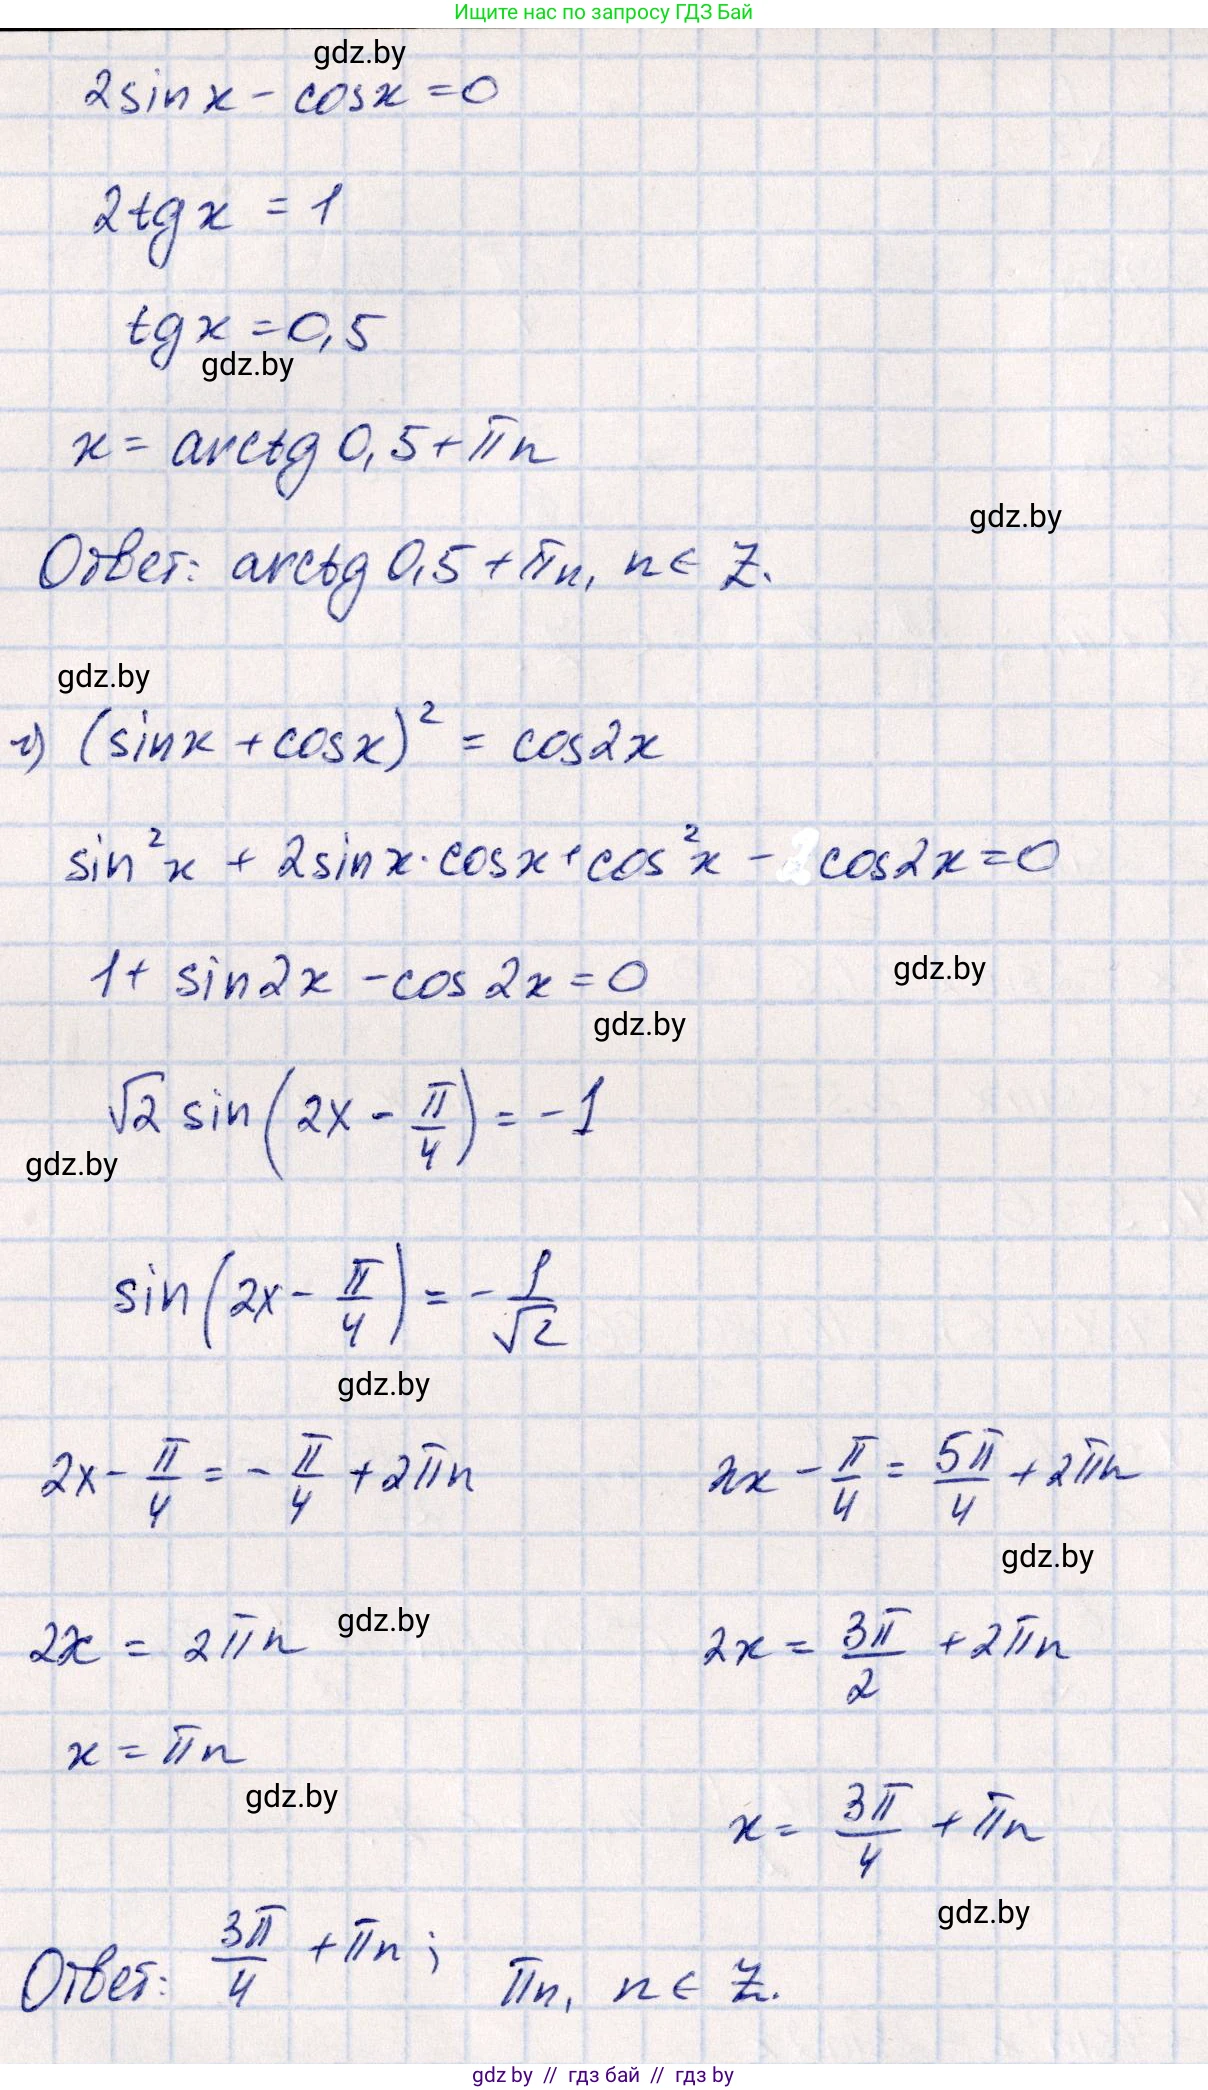 Ищите нас по запросу ГДЗ Бай
gdz.by
2sinx - cosx = 0
2tgx = 1
tgx = 0,5
gdz.by
x = arctg 0,5 + πn
gdz.by
Ответ: arctg 0,5 + πn, n ∈ Z.
gdz.by
г) (sinx + cosx)² = cos2x
sin²x + 2sinx · cosx + cos²x - cos2x = 0
1 + sin2x - cos2x = 0
gdz.by
gdz.by
√2 sin(2x - π/4) = -1
gdz.by
sin(2x - π/4) = - 1/√2
gdz.by
2x - π/4 = - π/4 + 2πn 2x - π/4 = 5π/4 + 2πn
gdz.by
gdz.by
2x = 2πn 2x = 3π/2 + 2πn
x = πn
gdz.by
x = 3π/4 + πn
gdz.by
Ответ: 3π/4 + πn; πn, n ∈ Z.
gdz.by // гдз бай // гдз by